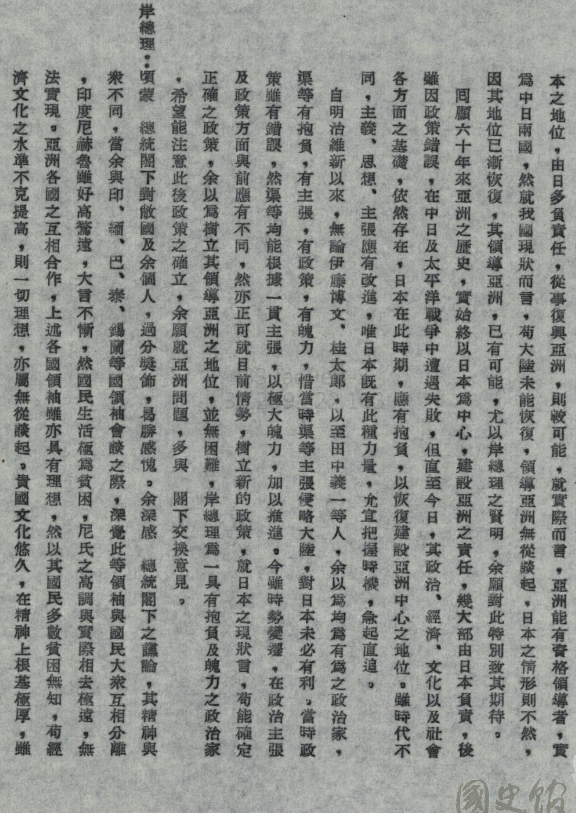 本之地位，由日多負責任，從事復興亞洲，則較可能，就實際而言，亞洲能有資格領導者，實
爲中日兩國，然就我國現狀而言，苟大陸未能恢復，領導亞洲無從談起，日本之情形則不然，
因其地位已漸恢復，其領導亞洲，已有可能，尤以岸總理之賢明，余願對此特別致其期待。
回顧六十年來亞洲之歷史，實始終以日本爲中心，建設亞洲之責任，幾大部由日本負責，後
雖因政策錯誤，在中日及太平洋戰爭中遭遇失敗，但直至今日，其政治、經濟、文化以及社會
各方面之基礎，依然存在，日本在此時期，應有抱負，以恢復建設亞洲中心之地位。雖時代不
同，主義、思想、主張應有改進，唯日本既有此種力量，允宜把握時機，急起直追。
自明治維新以來，無論伊藤博文、桂太郎，以至田中義一等人，余以爲均爲有爲之政治家，
渠等有抱負，有主張，有政策，有魄力，惜當時渠等主張侵略大陸，對日本未必有利。當時政
策雖有錯誤，然渠等均能根據一貫主張，以極大魄力，加以推進。今雖時勢變遷，在政治主張
及政策方面與前應有不同，然亦正可就目前情勢，樹立新的政策，就日本之現狀言，苟能確定
正確之政策，余以爲樹立其領導亞洲之地位，並無困難，岸總理爲一具有抱負及魄力之政治家
，希望能注意此後政策之確立，余願就亞洲問題，多與　閣下交換意見。
岸總理：頃蒙　總統閣下對敝國及余個人，過分獎飾，曷勝感愧。余深感　總統閣下之讜論，其精神與
衆不同，當余與印、緬、巴、泰、錫蘭等國領袖會談之際，深覺此等領袖與國民大衆互相分離
，印度尼赫魯雖好高騖遠，大言不慚，然國民生活極爲貧困，尼氏之高調與實際相去極遠，無
法實現。亞洲各國之互相合作，上述各國領袖雖亦具有理想，然以其國民多數貧困無知，苟經
濟文化之水準不克提高，則一切理想，亦屬無從談起。貴國文化悠久，在精神上根基極厚，雖
國史館